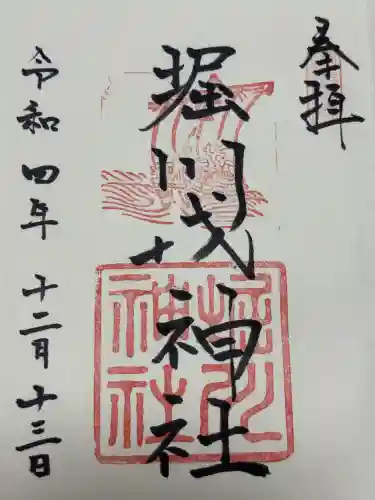 奉拝
堀川戎神社
令和四年 十二月 十三日
堀川
神社